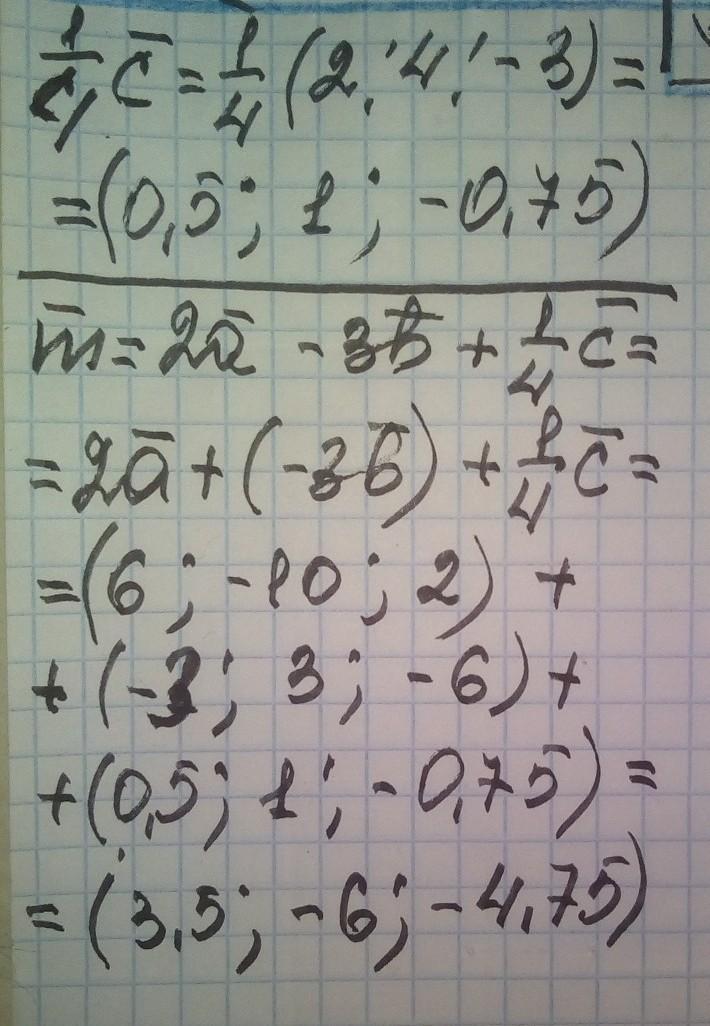 1/4 c̄ = 1/4 (2; 4; -3) =
= (0,5; 1; -0,75)
m̄ = 2ā - 3b̄ + 1/4 c̄ =
= 2ā + (-3b̄) + 1/4 c̄ =
= (6; -10; 2) +
+ (-3; 3; -6) +
+ (0,5; 1; -0,75) =
= (3,5; -6; -4,75)